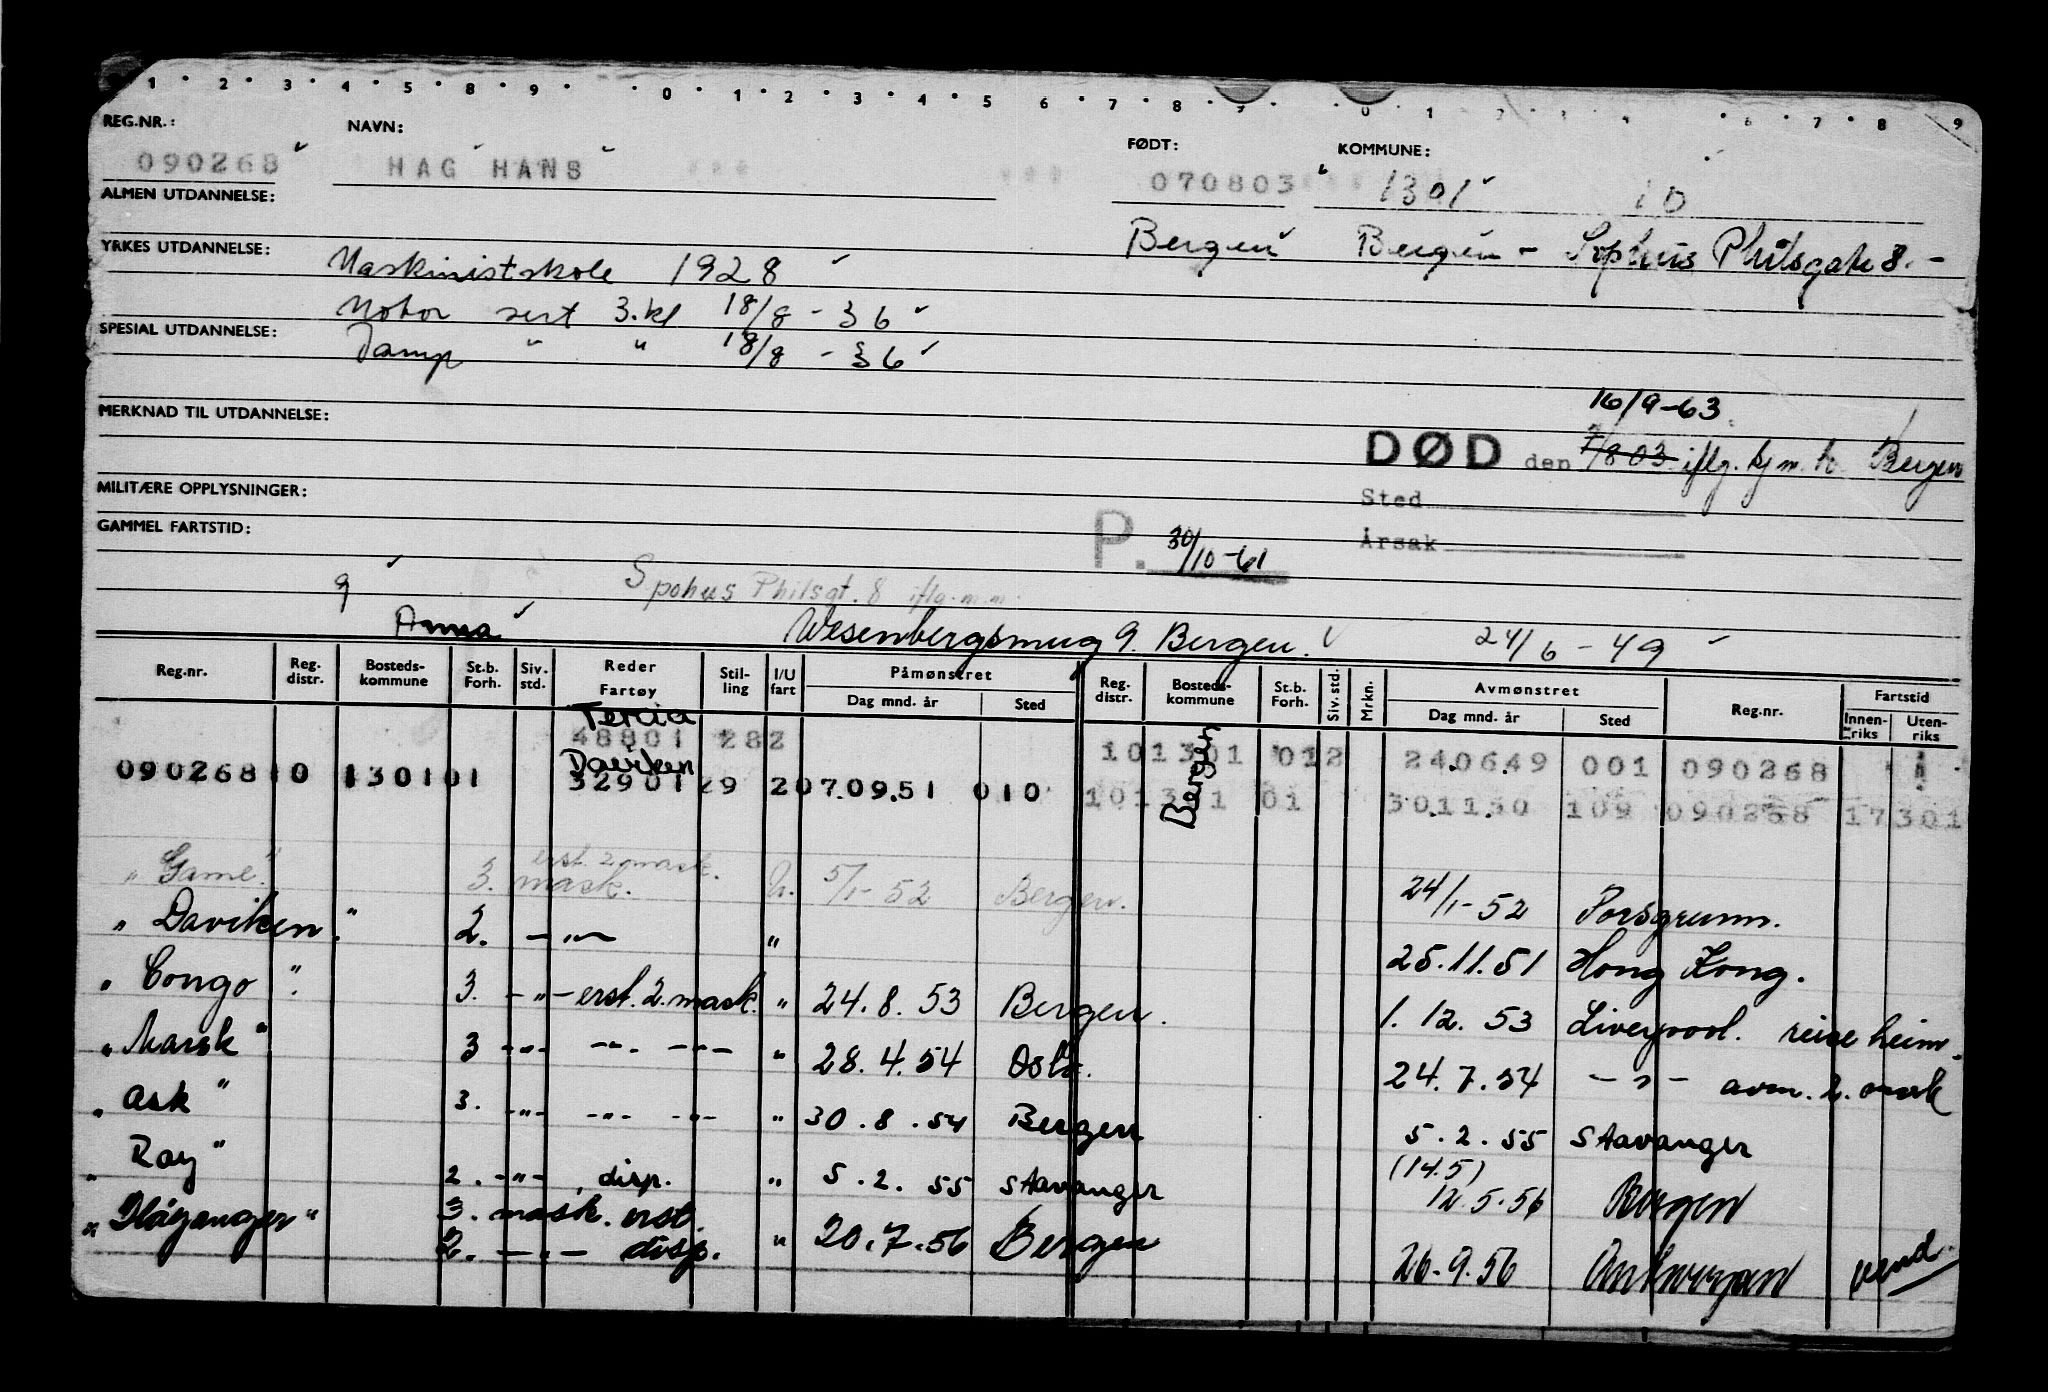 1 2 3 4 5 6 8 9 0 1 2 3 4 5 6 7 8 9 0 1 6 7 8 9
REG.NR.: NAVN: FØDT: KOMMUNE:
090268 HAG HANS 070803 1301 10
ALMEN UTDANNELSE:
Bergen Bergen - Sophus Philsgate 8. -
YRKES UTDANNELSE: Maskinistskole 1928
Motor sert 3. kl 18/8 - 36
SPESIAL UTDANNELSE: Damp " " 18/8 - 36
16/9-63.
MERKNAD TIL UTDANNELSE:
DØD den 7/8 03 iflg. hj m. h. Bergen
MILITÆRE OPPLYSNINGER:
Sted
GAMMEL FARTSTID:
P. 30/10-61
Årsak
g Spohus Philsgt. 8 iflg. m.m.
Anna Wesenbergsmug 9. Bergen. 24/6 - 49
Reg.nr. Reg. distr. Bosteds-kommune St.b. Forh. Siv. std. Reder Fartøy Stil-ling I/U fart Påmønstret Dag mnd. år Sted Reg. distr. Bosteds-kommune St.b. Forh. Siv. std. Mrkn. Avmønstret Dag mnd. år Sted Reg.nr. Fartstid Innen-riks Uten-riks
Tercia
48801 282 101301 012 240649 001 090268
Daviken Bergen
090268 10 1301 01 32901 29 2 07.09.51 010 101301 01 301150 109 090268 17301
erst. 2. mask.
" Game " 3. mask. U. 5/1-52 Bergen. 24/1-52 Porsgrunn.
" Daviken " 2. -"- " 25.11.51 Hong Kong.
" Congo " 3. -"- erst. 2. mask. " 24.8.53 Bergen. 1.12.53 Liverpool. reise heim.
" Marsk " 3 -"- -"- -"- " 28.4.54 Oslo. 24.7.54 -"- avm. 2. mask
" Ask " 3. -"- -"- -"- " 30.8.54 Bergen 5.2.55 Stavanger
" Roy " 2. -"- disp. " 5.2.55 Stavanger (14.5) 12.5.56 Bergen
" Høyanger " 3. mask. erst. 2. -"- disp. " 20.7.56 Bergen 26.9.56 Antwerpen vend.